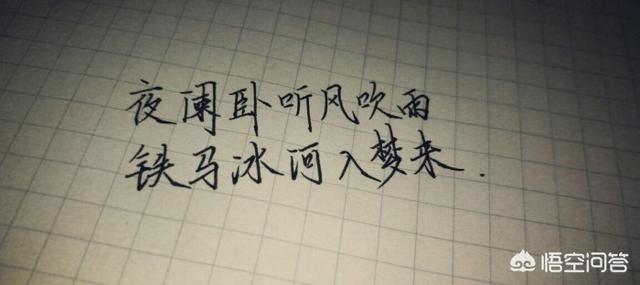 夜阑卧听风吹雨
铁马冰河入梦来.
悟空问答